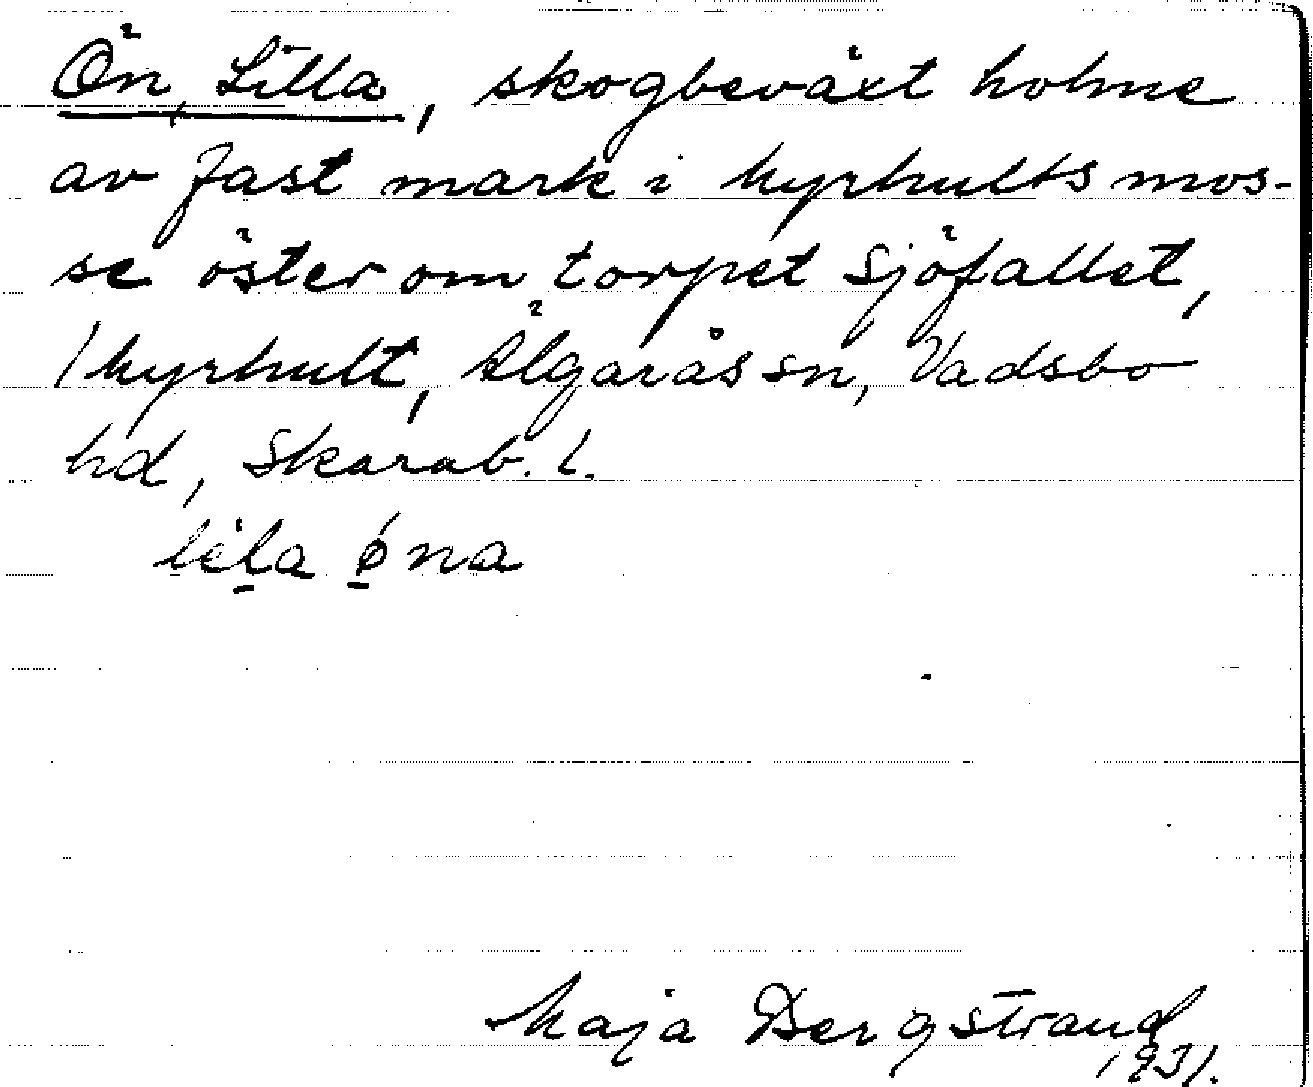 Ön, Lilla, skogbeväxt holme
av fast mark i Myrhults mos-
se öster om torpet Sjöfallet,
/Myrhult, Älgarås sn, Vadsbo
hd, Skarab. l.
lela øna
Maja Bergstrand
1931.